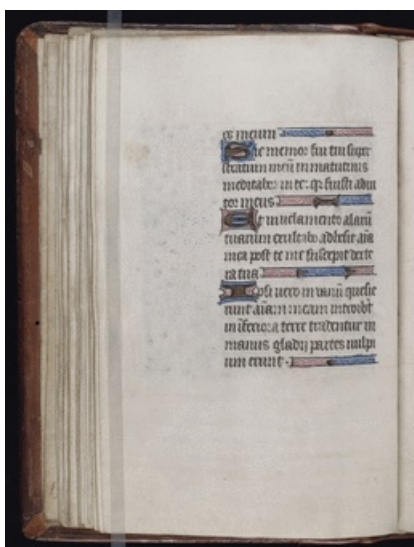 os meum
Sic memor fui tui super
stratum meū in matutinis
meditabor in te: qr fuisti adiu
tor meus
Et in uelamento alarū
tuarum exultabo adhesit aīa
mea post te me suscepit dexte
ra tua
Ipsi uero in uanū quesie
runt aīam meam introibūt
in īferiora terre tradentur in
manus gladii partes uulpi
um erunt